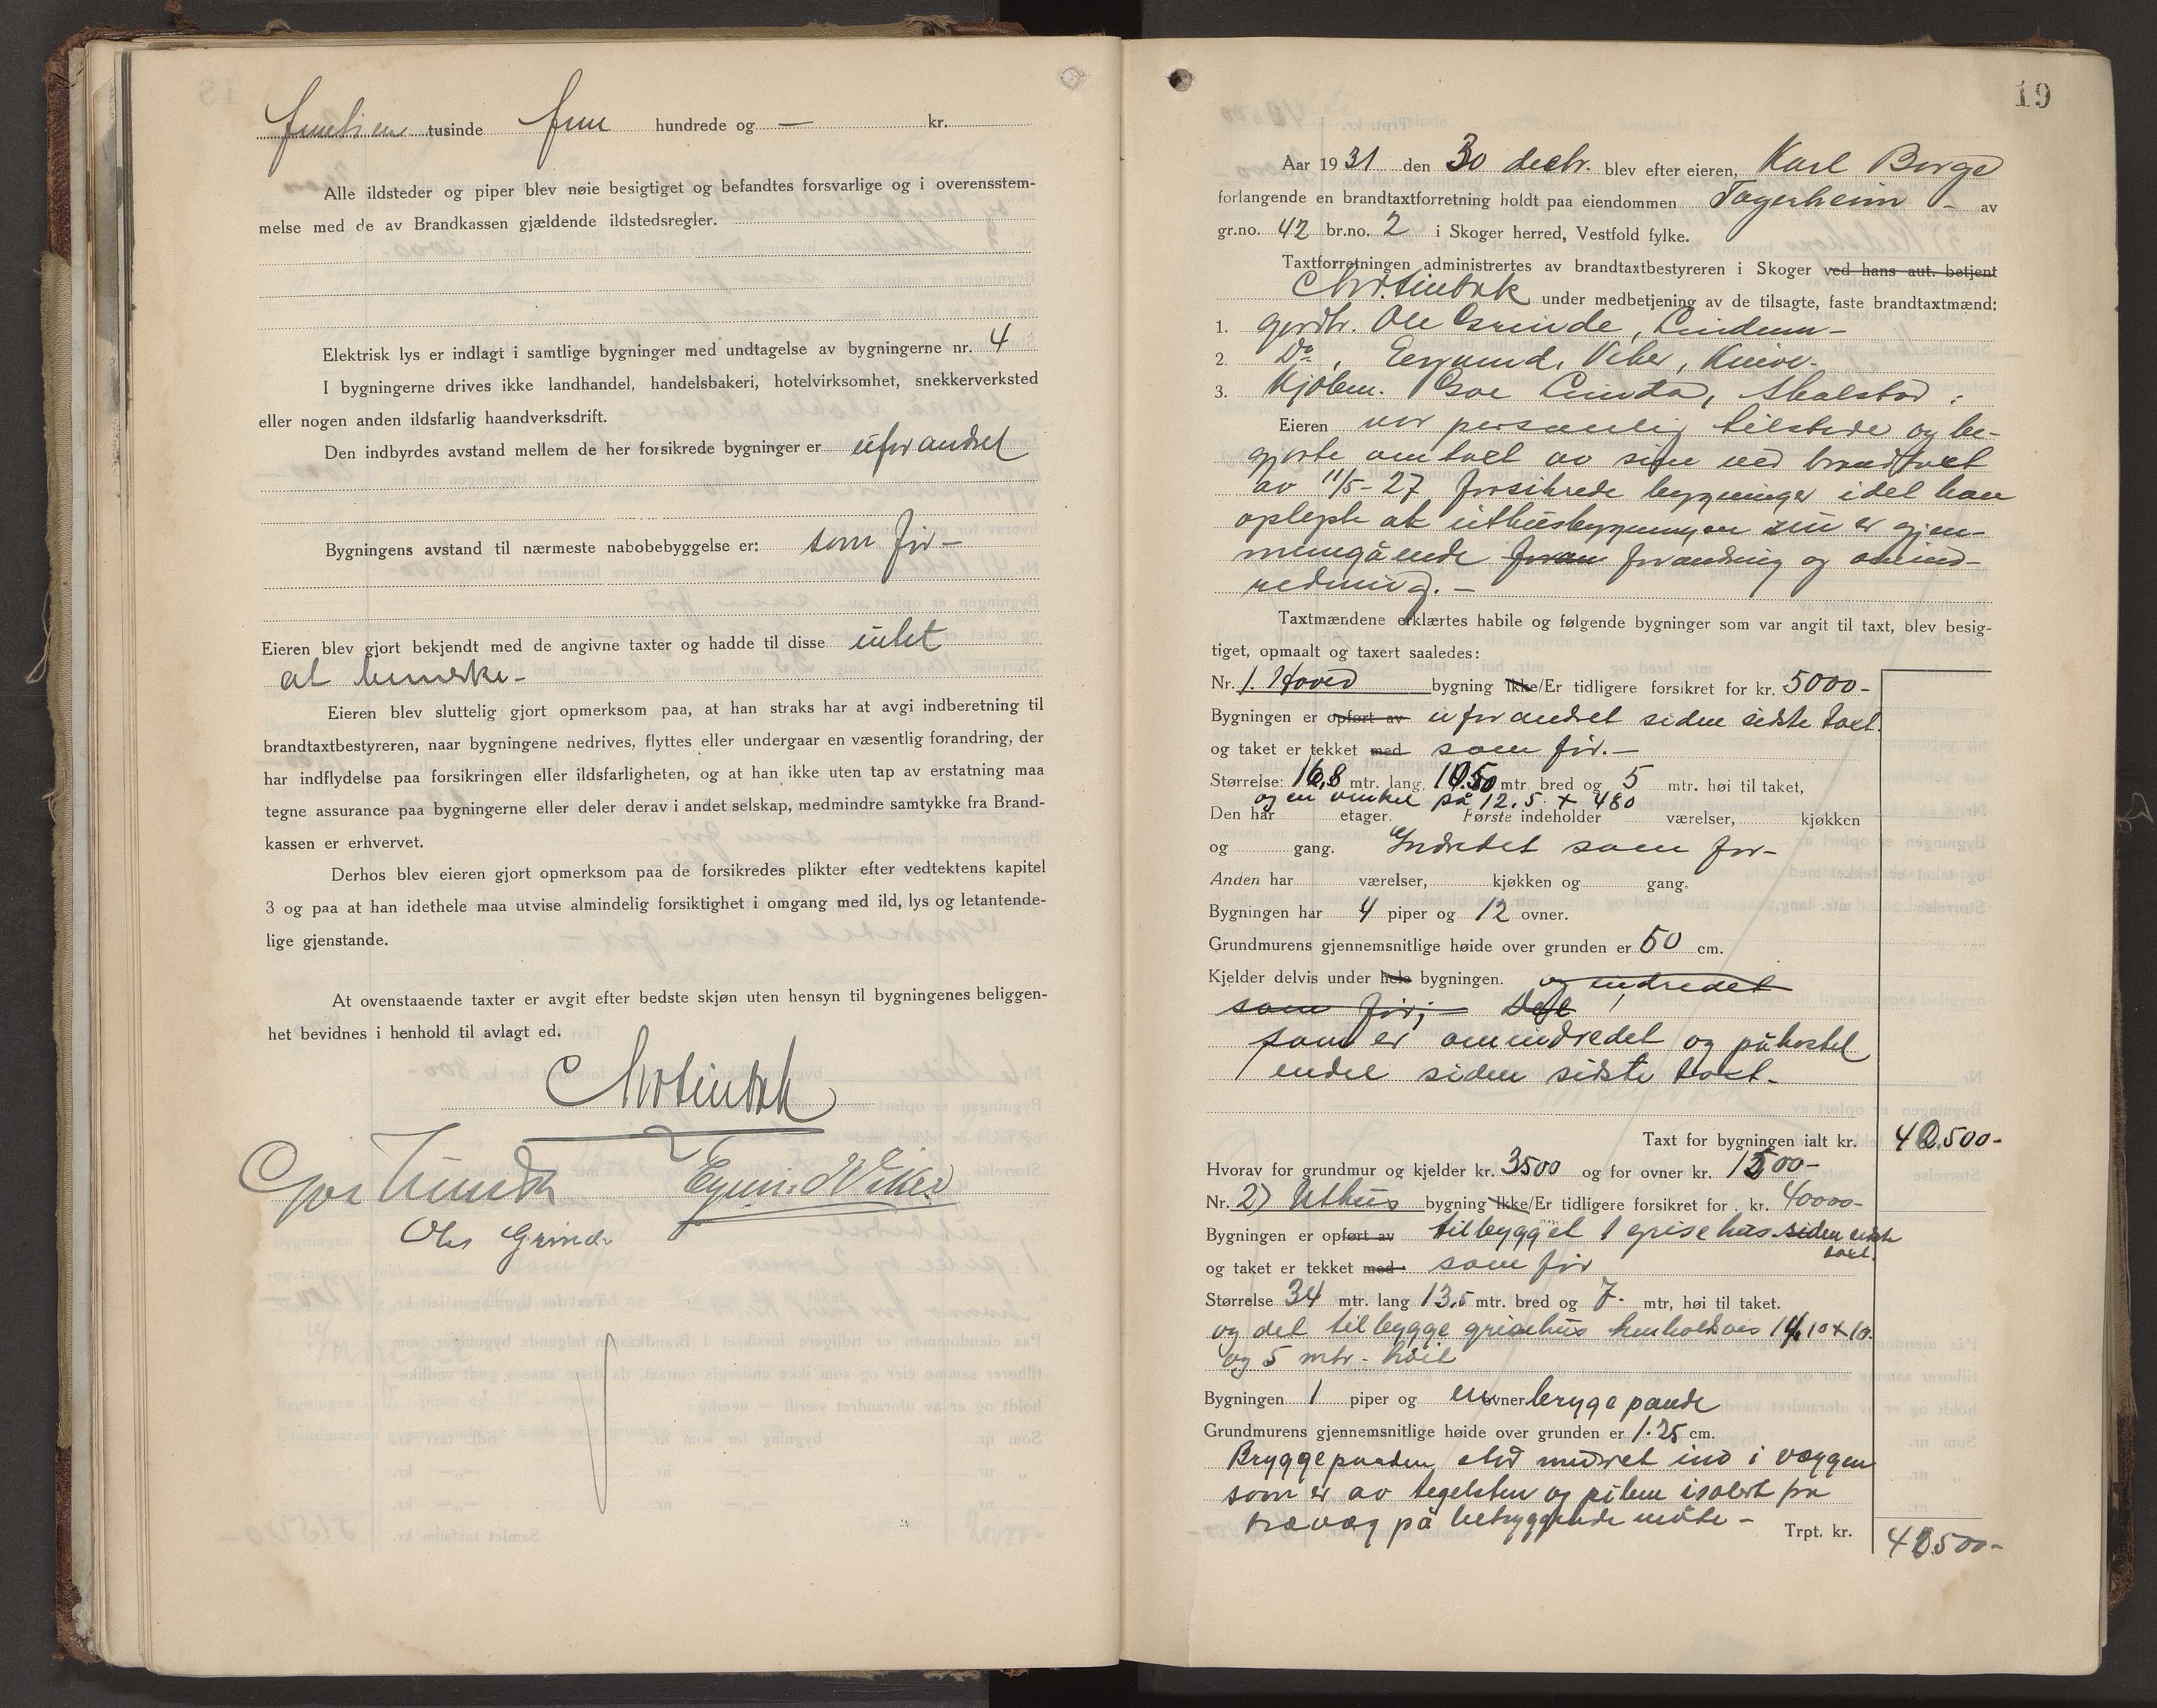 tusinde fem hundrede og — kr.
Alle ildsteder og piper blev nøie besigtiget og befandtes forsvarlige og i overensstem-
melse med de av Brandkassen gjældende ildstedsregler.
Elektrisk lys er indlagt i samtlige bygninger med undtagelse av bygningerne nr. 4
I bygningerne drives ikke landhandel, handelsbakeri, hotelvirksomhet, snekkerverksted
eller nogen anden ildsfarlig haandverksdrift.
Den indbyrdes avstand mellem de her forsikrede bygninger er uforandret
Bygningens avstand til nærmeste nabobebyggelse er: som før —
Eieren blev gjort bekjendt med de angivne taxter og hadde til disse intet
at bemerke -
Eieren blev sluttelig gjort opmerksom paa, at han straks har at avgi indberetning til
brandtaxtbestyreren, naar bygningene nedrives, flyttes eller undergaar en væsentlig forandring, der
har indflydelse paa forsikringen eller ildsfarligheten, og at han ikke uten tap av erstatning maa
tegne assurance paa bygningerne eller deler derav i andet selskap, medmindre samtykke fra Brand-
kassen er erhvervet.
Derhos blev eieren gjort opmerksom paa de forsikredes plikter efter vedtektens kapitel
3 og paa at han idethele maa utvise almindelig forsiktighet i omgang med ild, lys og letantende-
lige gjenstande.
At ovenstaaende taxter er avgit efter bedste skjøn uten hensyn til bygningenes beliggen-
het bevidnes i henhold til avlagt ed.
Ole Grinde
19
Aar 1931 den 30 decbr. blev efter eieren, Karl Borge
forlangende en brandtaxtforretning holdt paa eiendommen Fagerheim - av
gr.no. 42 br.no. 2 i Skoger herred, Vestfold fylke.
Taxtforretningen administrertes av brandtaxtbestyreren i Skoger ved hans aut. betjent
under medbetjening av de tilsagte, faste brandtaxtmænd:
1. gerdbr. Ole Grinde, Lindum -
2. Do,
3. Kjøbm.
Eieren var personlig tilstede og be-
gjærte omtaxt av sine ved brandtaxt
av 11/5-27 forsikrede bygninger idet han
oplyste at uthusbygningen nu er gjen-
nemgående foran forandring og omind-
redning. -
Taxtmændene erklærtes habile og følgende bygninger som var angit til taxt, blev besig-
tiget, opmaalt og taxert saaledes:
Nr. 1. Hoved bygning Ikke/Er tidligere forsikret for kr. 5000 -
Bygningen er opført av uforandret siden sidste taxt.
og taket er tekket med som før. -
Størrelse: 16,8 mtr. lang, 10.50 mtr. bred og 5 mtr. høi til taket,
og en vinkel på 12.5 x 480
Den har etager. Første indeholder værelser, kjøkken
og gang. Indredet som før -
Anden har værelser, kjøkken og gang.
Bygningen har 4 piper og 12 ovner.
Grundmurens gjennemsnitlige høide over grunden er 50 cm.
Kjelder delvis under hele bygningen. og indredet
som før; Det
som er omindredet og påkostet
endel siden sidste taxt.
Taxt for bygningen ialt kr. 42.500-
Hvorav for grundmur og kjelder kr. 3500 og for ovner kr. 1500-
Nr. 2) Uthus bygning Ikke/Er tidligere forsikret for kr. 40000-
Bygningen er opført av tilbygget 1 grisehus siden sidste
taxt.
og taket er tekket med som før
Størrelse 34 mtr. lang 13,5 mtr. bred og 7. mtr, høi til taket.
og det tilbygge grisehus henholdsvis 14,10 x 10.
og 5 mtr. - høit
Bygningen 1 piper og en ovner bryggepande
Grundmurens gjennemsnitlige høide over grunden er 1.25 cm.
Bryggepanden, muret ind i væggen
som er av tegelsten og piben isolert fra
trævæg på betryggende måte -
Trpt. kr. 42500-